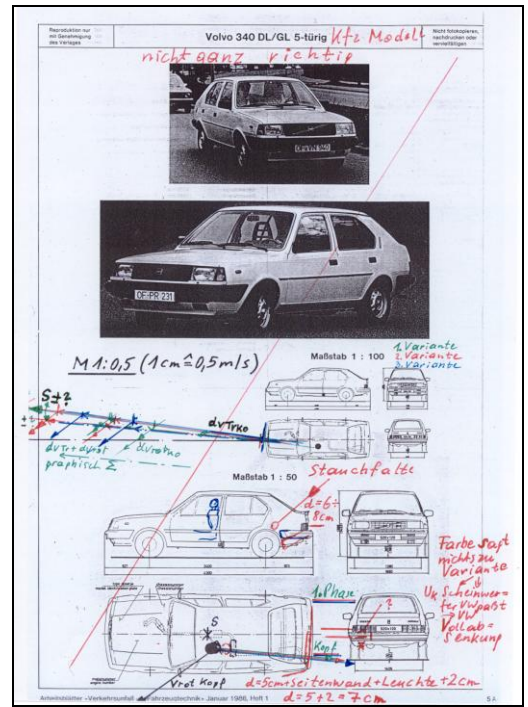 Reproduktion nur
mit Genehmigung
des Verlages
Volvo 340 DL/GL 5-türig
Kfz Modell
Nicht fotokopieren,
nachdrucken oder
vervielfältigen
nicht ganz richtig
OF-PR 231
M 1:0,5 (1cm ≙ 0,5m/s)
Maßstab 1 : 100
1. Variante
2. Variante
3. Variante
S+?
dvTrko
dvTr+dvrot
dvrotko
graphisch Σ
Maßstab 1 : 50
Stauchfalte
d=6÷
8cm
Farbe sagt
nichts zu
Variante
1. Phase
?
Uk Scheinwer=
fer VW paßt
→ VW
Vollab=
Senkung
S
Kopf
Vrot Kopf
d=5cm+Seitenwand+Leuchte+2cm
d=5+2=7cm
Arbeitsblätter «Verkehrsunfall + Fahrzeugtechnik» Januar 1986, Heft 1
5 A